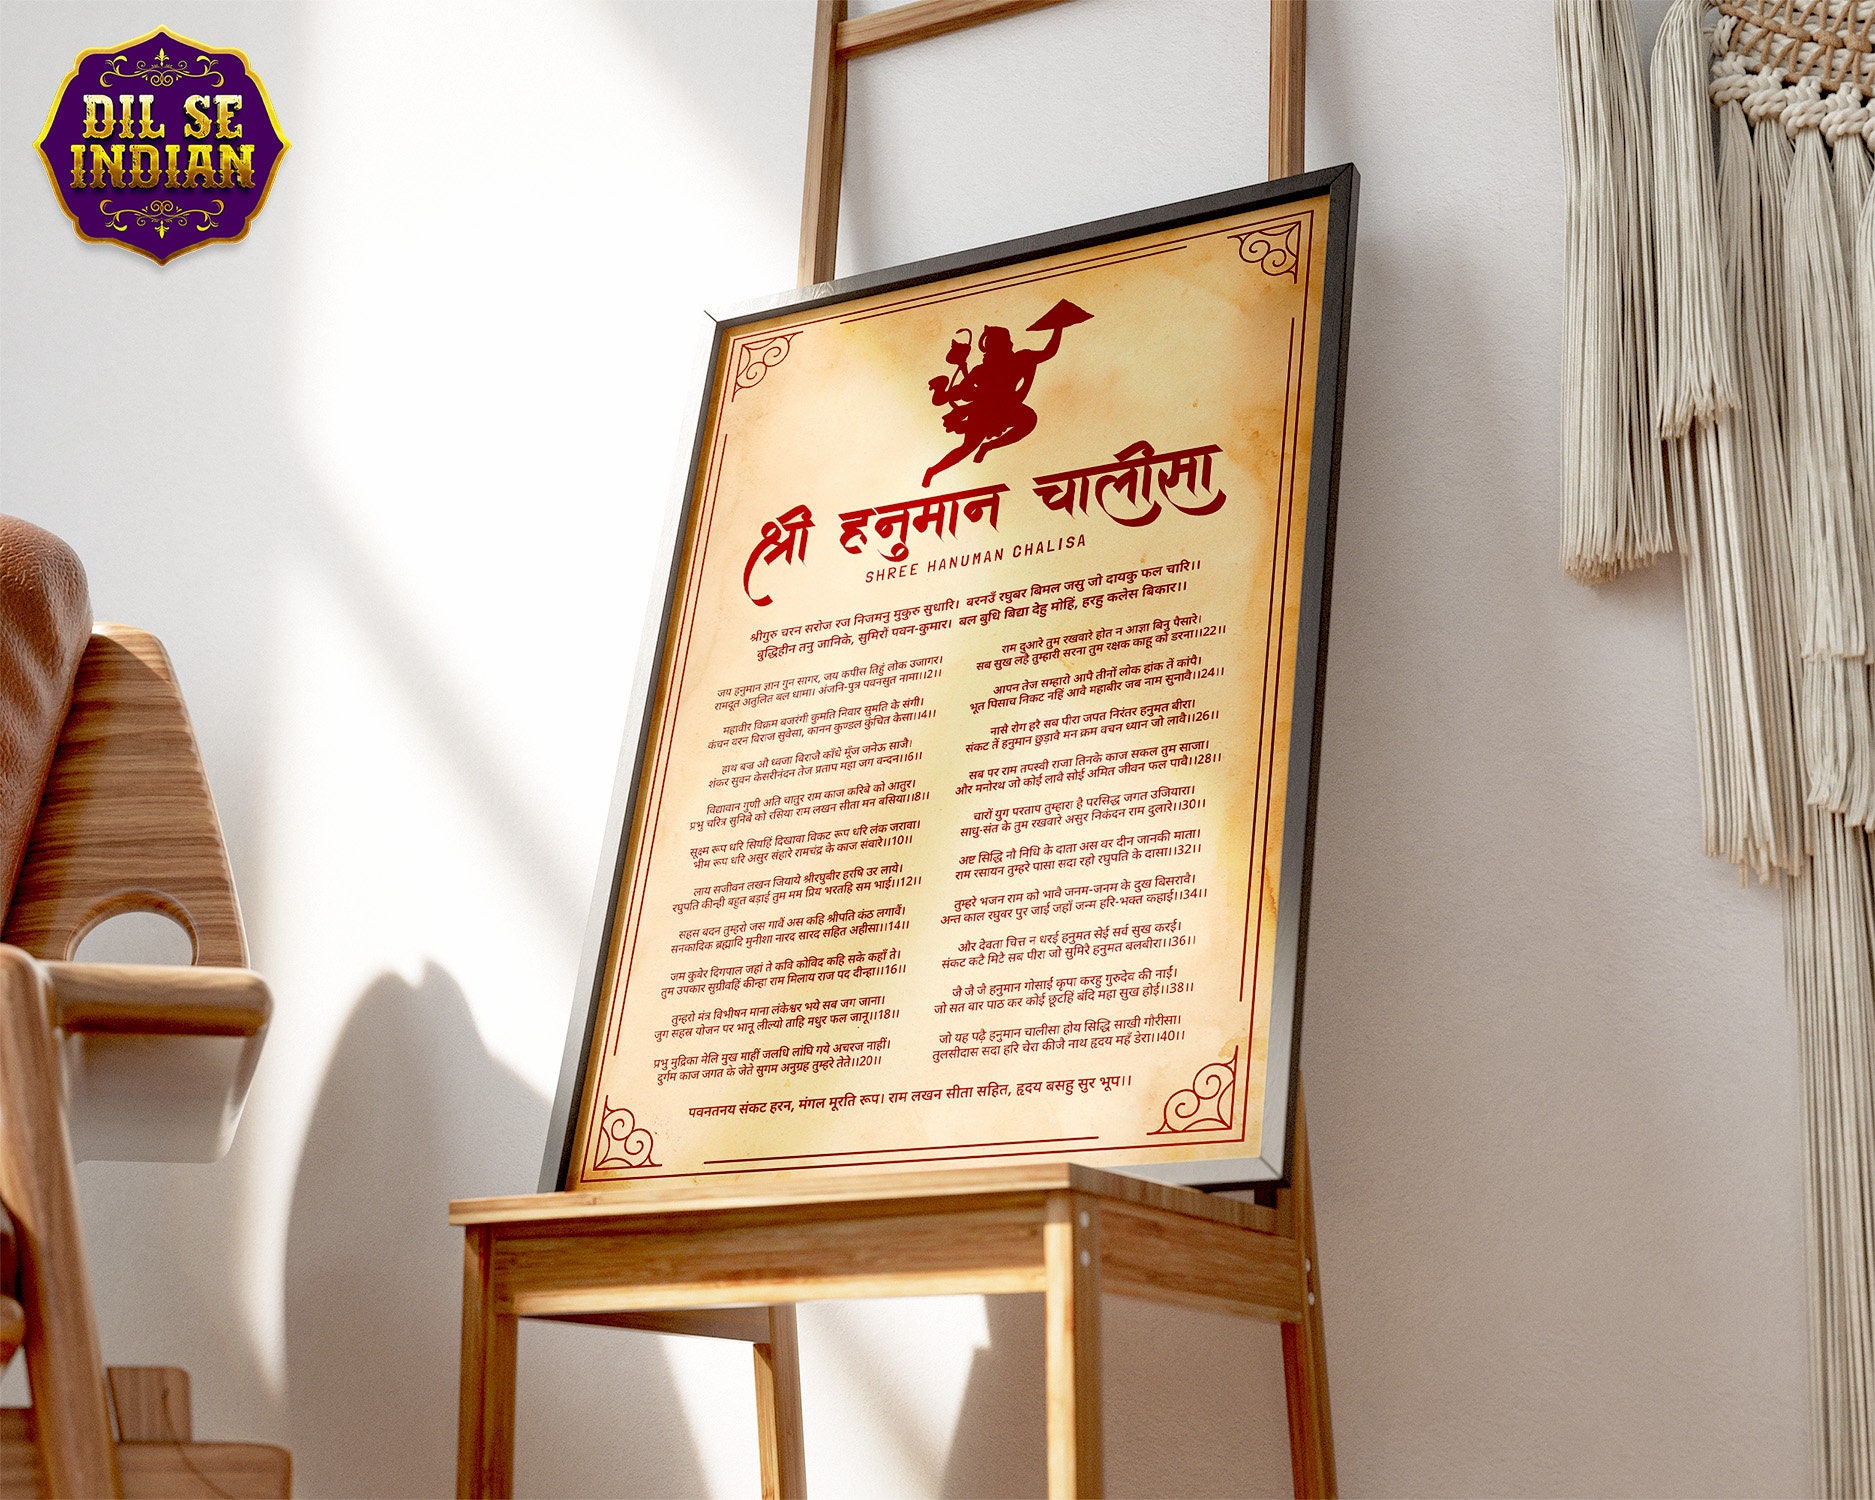 DIL SE
INDIAN
श्री हनुमान चालीसा
SHREE HANUMAN CHALISA
श्रीगुरु चरन सरोज रज निजमनु मुकुरु सुधारि। बरनउँ रघुबर बिमल जसु जो दायकु फल चारि।।
बुद्धिहीन तनु जानिके, सुमिरौं पवन-कुमार। बल बुधि बिद्या देहु मोहिं, हरहु कलेस बिकार।।
जय हनुमान ज्ञान गुन सागर, जय कपीस तिहुं लोक उजागर।
रामदूत अतुलित बल धामा। अंजनि-पुत्र पवनसुत नामा।।2।।
महावीर विक्रम बजरंगी कुमति निवार सुमति के संगी।
कंचन वरन विराज सुवेसा, कानन कुण्डल कुंचित केसा।।4।।
हाथ बज्र औ ध्वजा बिराजै काँधे मूँज जनेऊ साजै।
शंकर सुवन केसरीनंदन तेज प्रताप महा जग वन्दन।।6।।
विद्यावान गुणी अति चातुर राम काज करिबे को आतुर।
प्रभु चरित्र सुनिबे को रसिया राम लखन सीता मन बसिया।।8।।
सूक्ष्म रूप धरि सियहिं दिखावा विकट रूप धरि लंक जरावा।
भीम रूप धरि असुर संहारे रामचंद्र के काज संवारे।।10।।
लाय सजीवन लखन जियाये श्रीरघुबीर हरषि उर लाये।
रघुपति कीन्ही बहुत बड़ाई तुम मम प्रिय भरतहि सम भाई।।12।।
सहस बदन तुम्हरो जस गावैं अस कहि श्रीपति कंठ लगावैं।
सनकादिक ब्रह्मादि मुनीशा नारद सारद सहित अहीसा।।14।।
जम कुबेर दिगपाल जहां ते कवि कोविद कहि सके कहाँ ते।
तुम उपकार सुग्रीवहिं कीन्हा राम मिलाय राज पद दीन्हा।।16।।
तुम्हरो मंत्र विभीषन माना लंकेश्वर भये सब जग जाना।
जुग सहस्र योजन पर भानू लील्यो ताहि मधुर फल जानू।।18।।
प्रभु मुद्रिका मेलि मुख माहीं जलधि लांघि गये अचरज नाहीं।
दुर्गम काज जगत के जेते सुगम अनुग्रह तुम्हरे तेते।।20।।
राम दुआरे तुम रखवारे होत न आज्ञा बिनु पैसारे।
सब सुख लहै तुम्हारी सरना तुम रक्षक काहू को डरना।।22।।
आपन तेज सम्हारो आपै तीनों लोक हांक तें कांपै।
भूत पिसाच निकट नहिं आवे महाबीर जब नाम सुनावै।।24।।
नासै रोग हरै सब पीरा जपत निरंतर हनुमत बीरा।
संकट तें हनुमान छुड़ावै मन क्रम वचन ध्यान जो लावै।।26।।
सब पर राम तपस्वी राजा तिनके काज सकल तुम साजा।
और मनोरथ जो कोई लावै सोई अमित जीवन फल पावै।।28।।
चारों युग परताप तुम्हारा है परसिद्ध जगत उजियारा।
साधु-संत के तुम रखवारे असुर निकंदन राम दुलारे।।30।।
अष्ट सिद्धि नौ निधि के दाता अस वर दीन जानकी माता।
राम रसायन तुम्हरे पासा सदा रहो रघुपति के दासा।।32।।
तुम्हरे भजन राम को भावै जनम-जनम के दुख बिसरावै।
अन्त काल रघुबर पुर जाई जहाँ जन्म हरि-भक्त कहाई।।34।।
और देवता चित्त न धरई हनुमत सेई सर्व सुख करई।
संकट कटै मिटै सब पीरा जो सुमिरै हनुमत बलबीरा।।36।।
जै जै जै हनुमान गोसाई कृपा करहु गुरुदेव की नाई।
जो सत बार पाठ कर कोई छूटहिं बंदि महा सुख होई।।38।।
जो यह पढ़ै हनुमान चालीसा होय सिद्धि साखी गौरीसा।
तुलसीदास सदा हरि चेरा कीजै नाथ हृदय महँ डेरा।।40।।
पवनतनय संकट हरन, मंगल मूरति रूप। राम लखन सीता सहित, हृदय बसहु सुर भूप।।